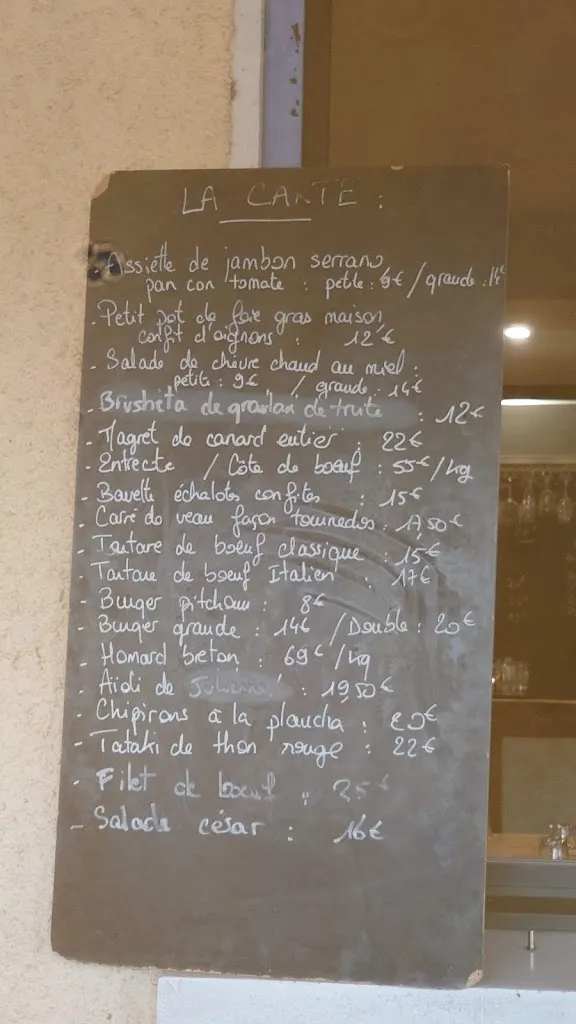 LA CARTE :
Assiette de jambon serrano
pan con tomate : petite : 9€ / grande : 14€
- Petit pot de foie gras maison,
confit d'oignons : 12€
- Salade de chèvre chaud au miel :
petite : 9€ / grande : 14€
- Brusheta de gravlax de truite : 12€
- Magret de canard entier : 22€
- Entrecôte / Côte de boeuf : 55€/kg
- Bavette échalotes confites : 15€
- Carré de veau façon tournedos : 17,50€
- Tartare de boeuf classique : 15€
- Tartare de boeuf Italien : 17€
- Burger pitchoun : 8€
- Burger grande : 14€ / Double : 20€
- Homard breton : 69€/kg
- Aïoli de Julienne : 19,50€
- Chipirons à la plancha : 20€
- Tataki de thon rouge : 22€
- Filet de boeuf : 25€
- Salade césar : 16€